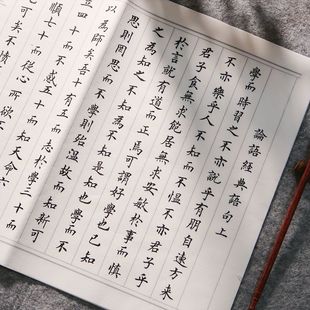 論語經典語句上
學而時習之不亦說乎有朋自遠方來
不亦樂乎人不知而不慍不亦君子乎
君子食無求飽居無求安敏於事而慎
於言就有道而正焉可謂好學也已知
之為知之不知為不知是知也學而不
思則罔思而不學則殆溫故而知新可
以為師矣吾十有五而志於學三十而
立四十而不惑五十而知天命六
順七十而從心所欲
可矣不